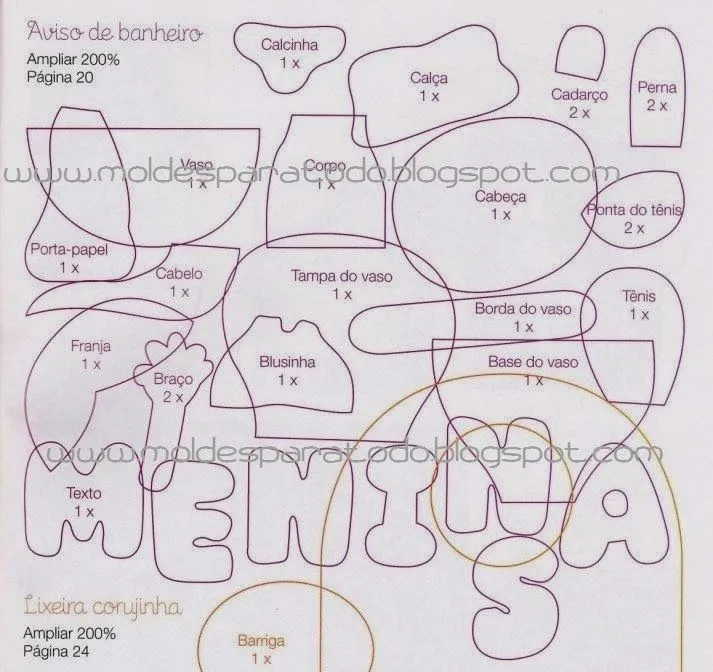 Aviso de banheiro
Ampliar 200%
Página 20
Calcinha
1 x
Calça
1 x
Cadarço
2 x
Perna
2 x
www.moldesparatodo.blogspot.com
Vaso
1 x
Corpo
1 x
Cabeça
1 x
Ponta do tênis
2 x
Porta-papel
1 x
Cabelo
1 x
Tampa do vaso
1 x
Borda do vaso
1 x
Tênis
1 x
Franja
1 x
Braço
2 x
Blusinha
1 x
Base do vaso
1 x
www.moldesparatodo.blogspot.com
MENINAS
Texto
1 x
Lixeira corujinha
Ampliar 200%
Página 24
Barriga
1 x